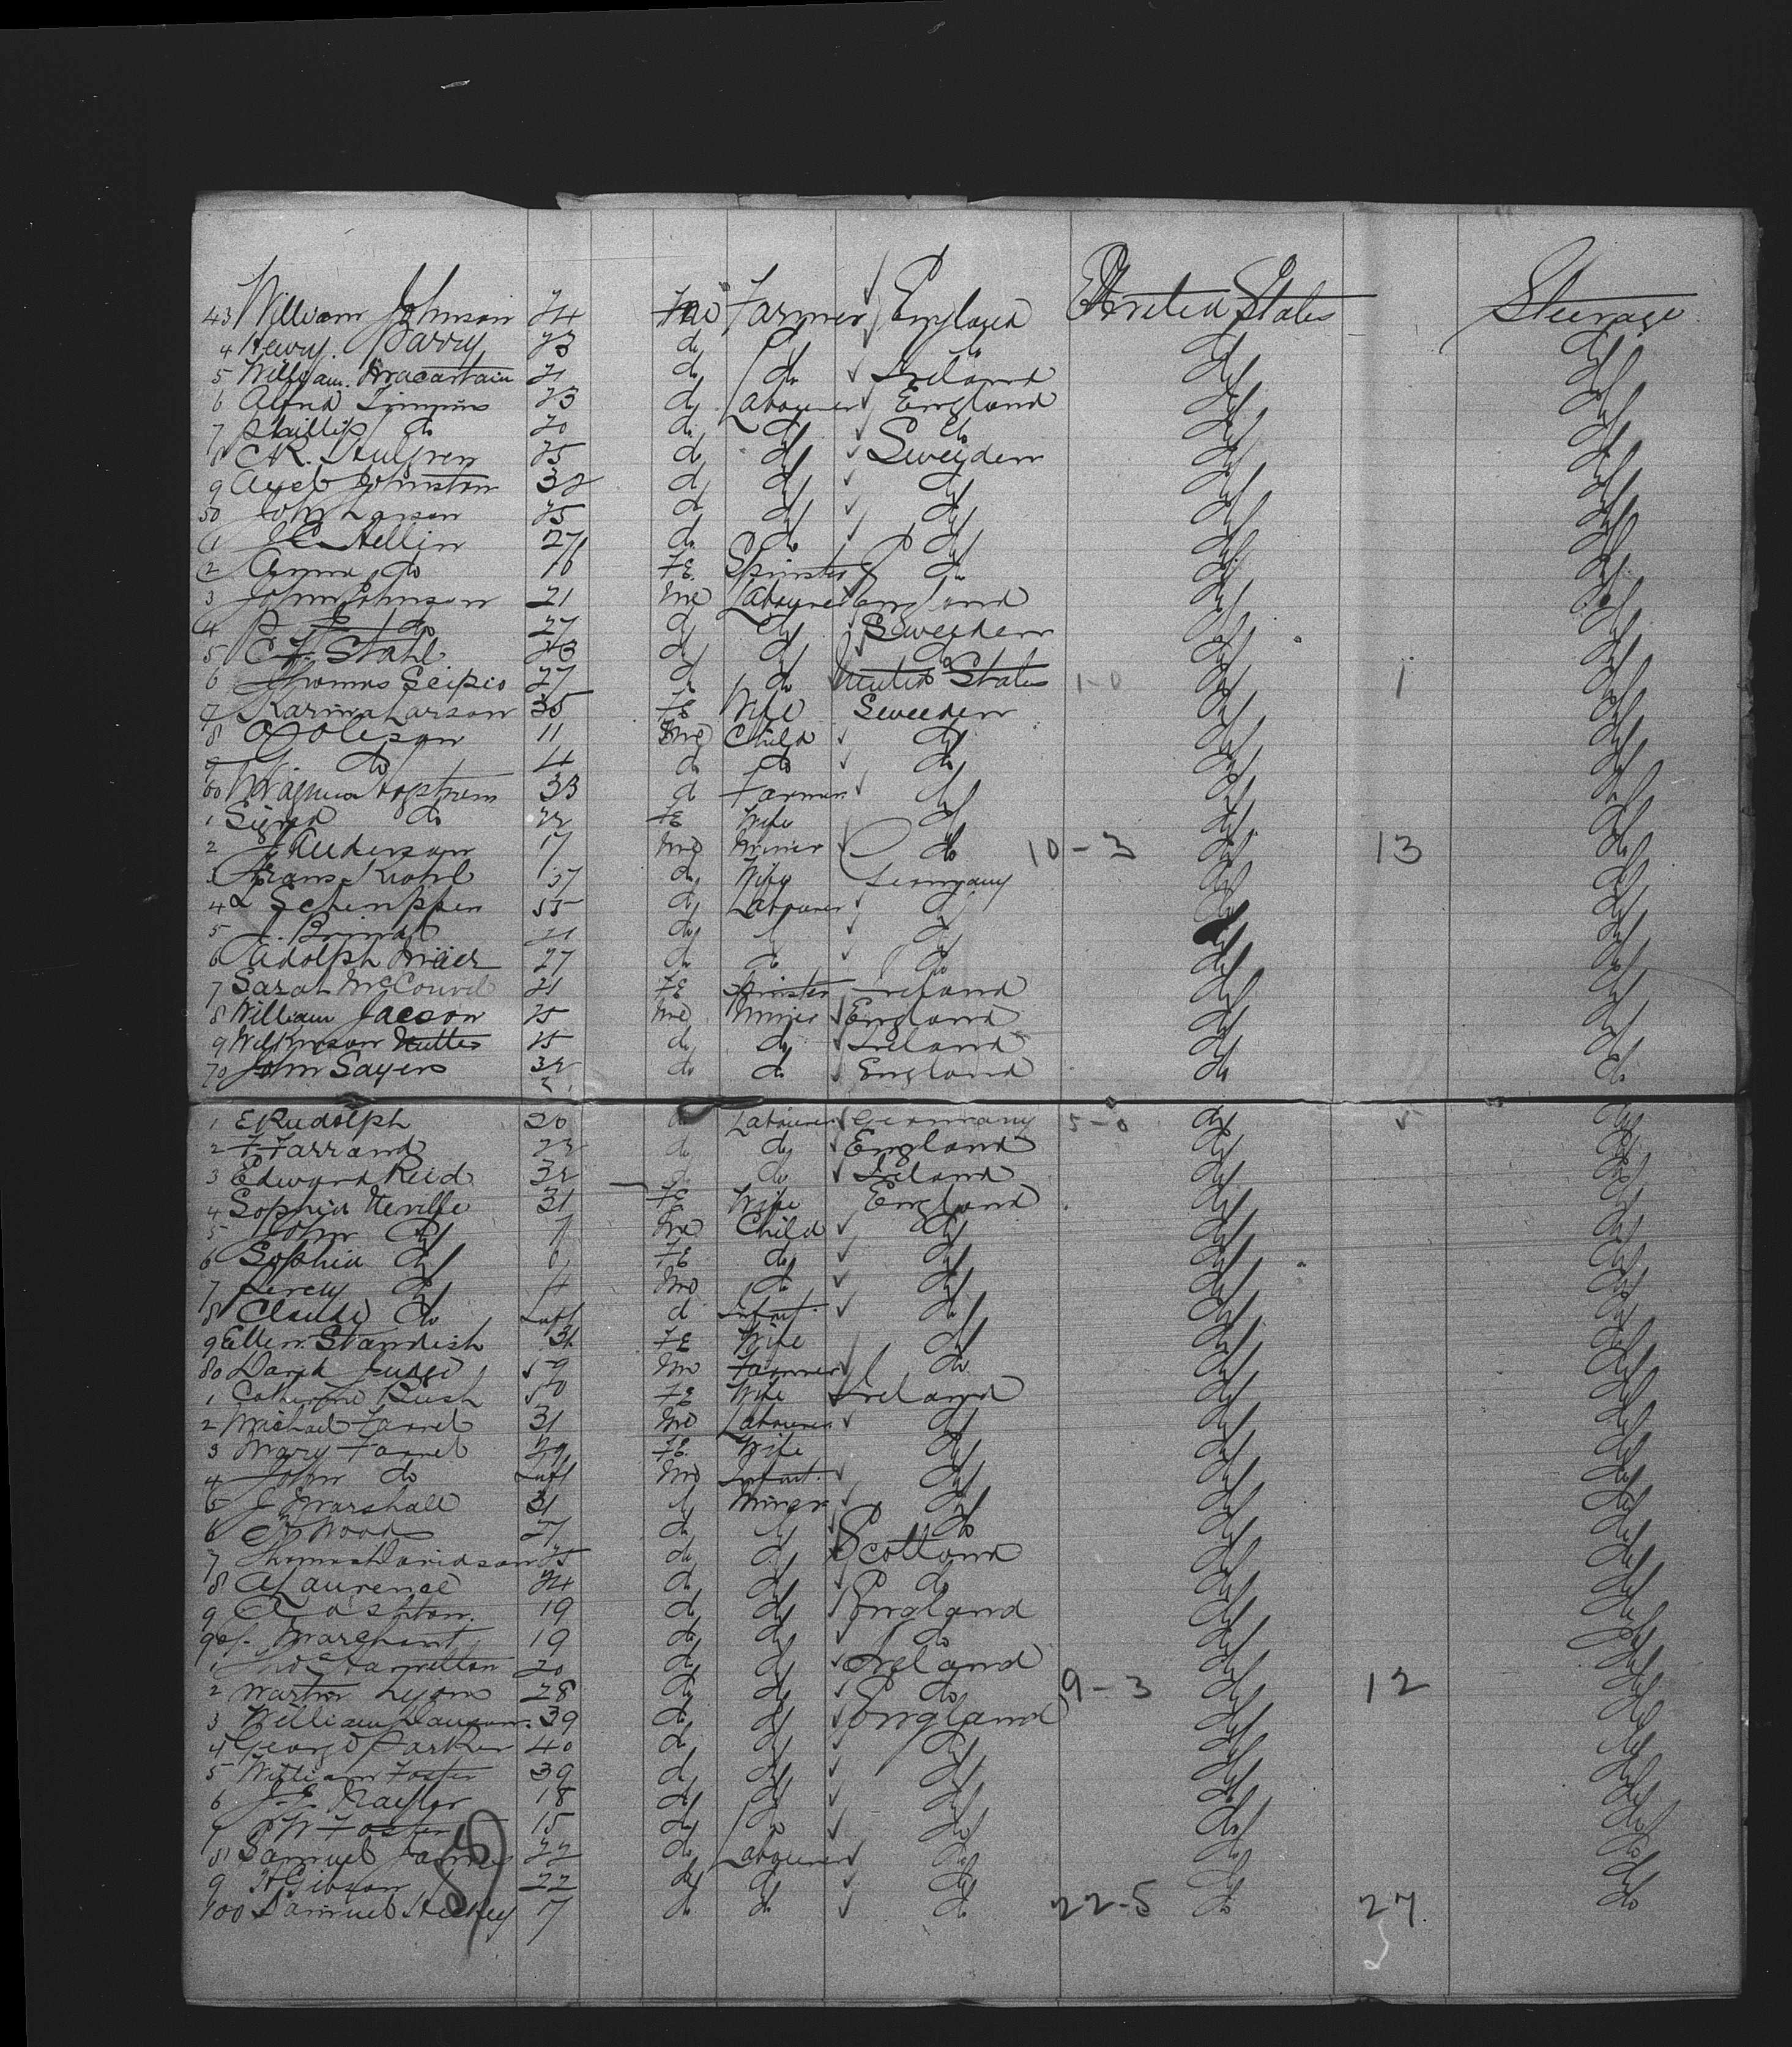 43 William Johnson 24 Me Farmer England United States Steerage
4 Henry Barry 23 do do do do do
5 William 21 do do Ireland do do
6 Timmins 23 do Labourer England do do
7 Phillip do 20 do do do do do
8 C.R. Hulgren 25 do do Sweeden do do
9 Axel Johnston 32 do do do do do
50 John Larson 25 do do do do do
1 J C Hellin 27 do do do do do
2 Anna do 16 FE Spinster do do do
3 John Johnson 21 Me Labourer England do do
4 do 27 do do Sweeden do do
5 C F Stahl 23 do do do do do
6 Thomas Scipio 27 do do United States 1-0 do 1 do
7 Karina Larson 35 FE Wife Sweeden do do
8 Oleson 11 Me Child do do do
9 do 4 do do do do do
60 Magnus 33 do Farmer do do do
1 Sigrid do 22 FE Wife do do do
2 J Anderson 17 Me Miner do 10-3 do 13 do
3 Frans Krohl 37 do Wife Germany do do
4 L Schimpfen 55 do Labourer do do do
5 J. 21 do do do do do
6 Adolph Maier 27 do do do do do
7 Sarah 21 FE Spinster Ireland do do
8 William Jacson 25 Me Miner England do do
9 Wilkinson 25 do do Ireland do do
70 John Sayers 32 do do England do do
1 E Rudolph 20 do Labourer Germany 5-0 do 5 do
2 F Farrand 22 do do England do do
3 Edward Reid 32 do do Ireland do do
4 Sophia Neville 31 FE Wife England do do
5 John do 7 Me Child do do do
6 Sophia do 6 FE do do do do
7 Percy do 4 Me do do do do
8 Claude do Inft do Infant do do do
9 Ellen Standish 31 FE Wife do do do
80 David Judge 59 Me Farmer do do do
1 Catherine Rush 50 FE Wife Ireland do do
2 Michael Farrel 31 Me Labourer do do do
3 Mary Farrel 29 FE Wife do do do
4 John do Inft Me Infant do do do
5 J Marshall 31 do Miner do do do
6 Wood 27 do do do do do
7 Thomas Davidson 25 do do Scotland do do
8 A Laurence 24 do do do do do
9 A Ashton 19 do do England do do
90 J. Marchant 19 do do do do do
1 Thos Hamilton 20 do do Ireland do do
2 Martin Lyons 28 do do do 9-3 do 12 do
3 William Dawson 39 do do England do do
4 George Parker 40 do do do do do
5 William Foster 39 do do do do do
6 J. E Naylor 18 do do do do do
7 W Foster 15 do do do do do
8 Samuel James 22 do Labourer do do do
9 H Gibson 22 do do do do do
100 Samuel Hickey 17 do do do 22-5 do 27 do